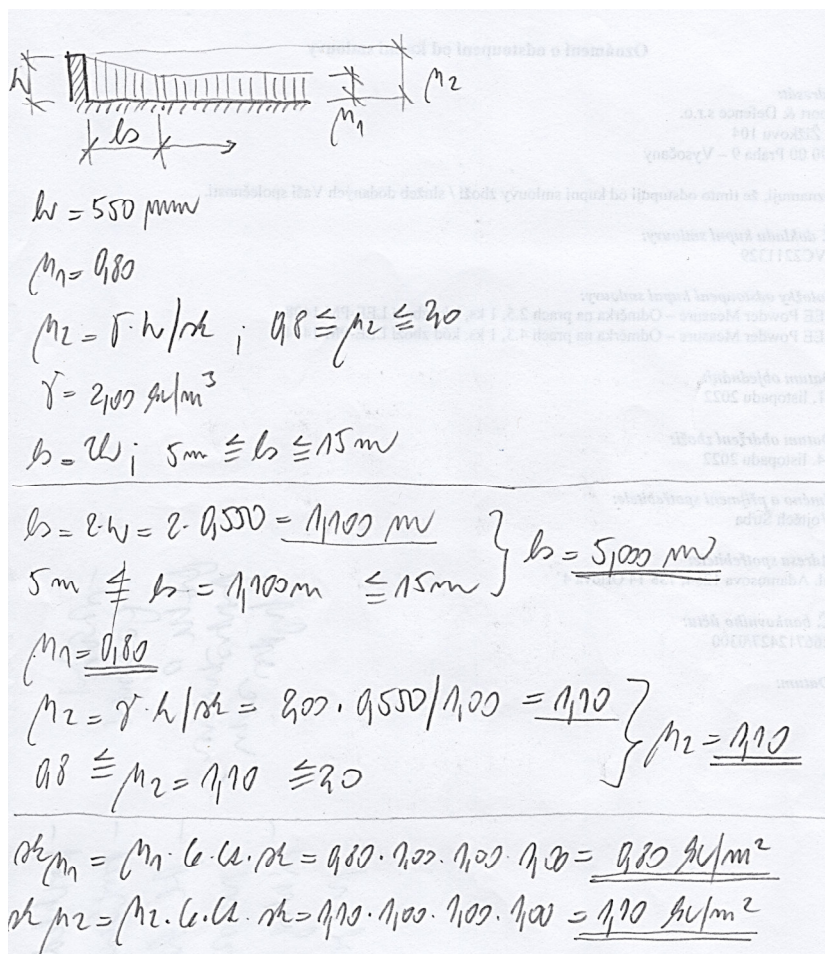 h
ls
μ1
μ2
h = 550 mm
μ1 = 0,80
μ2 = γ·h/sk ; 0,8 ≦ μ2 ≦ 2,0
γ = 2,00 kN/m³
ls = 2h; 5m ≦ ls ≦ 15m
ls = 2·h = 2·0,550 = 1,100 m } ls = 5,000 m
5m ≰ ls = 1,100m ≦ 15m
μ1 = 0,80
μ2 = γ·h/sk = 2,00 · 0,550/1,00 = 1,10 } μ2 = 1,10
0,8 ≦ μ2 = 1,10 ≦ 2,0
sk μ1 = μ1·Ce·Ct·sk = 0,80·1,00·1,00·1,00 = 0,80 kN/m²
sk μ2 = μ2·Ce·Ct·sk = 1,10·1,00·1,00·1,00 = 1,10 kN/m²